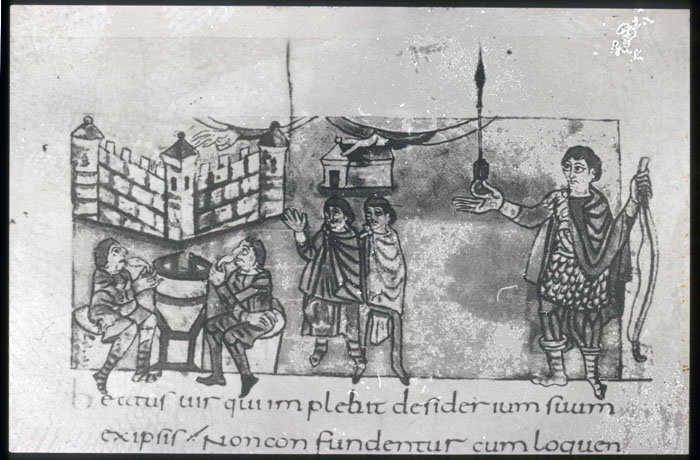 beatus uir qui implebit desiderium suum
exipsis / Non confundentur cum loquen